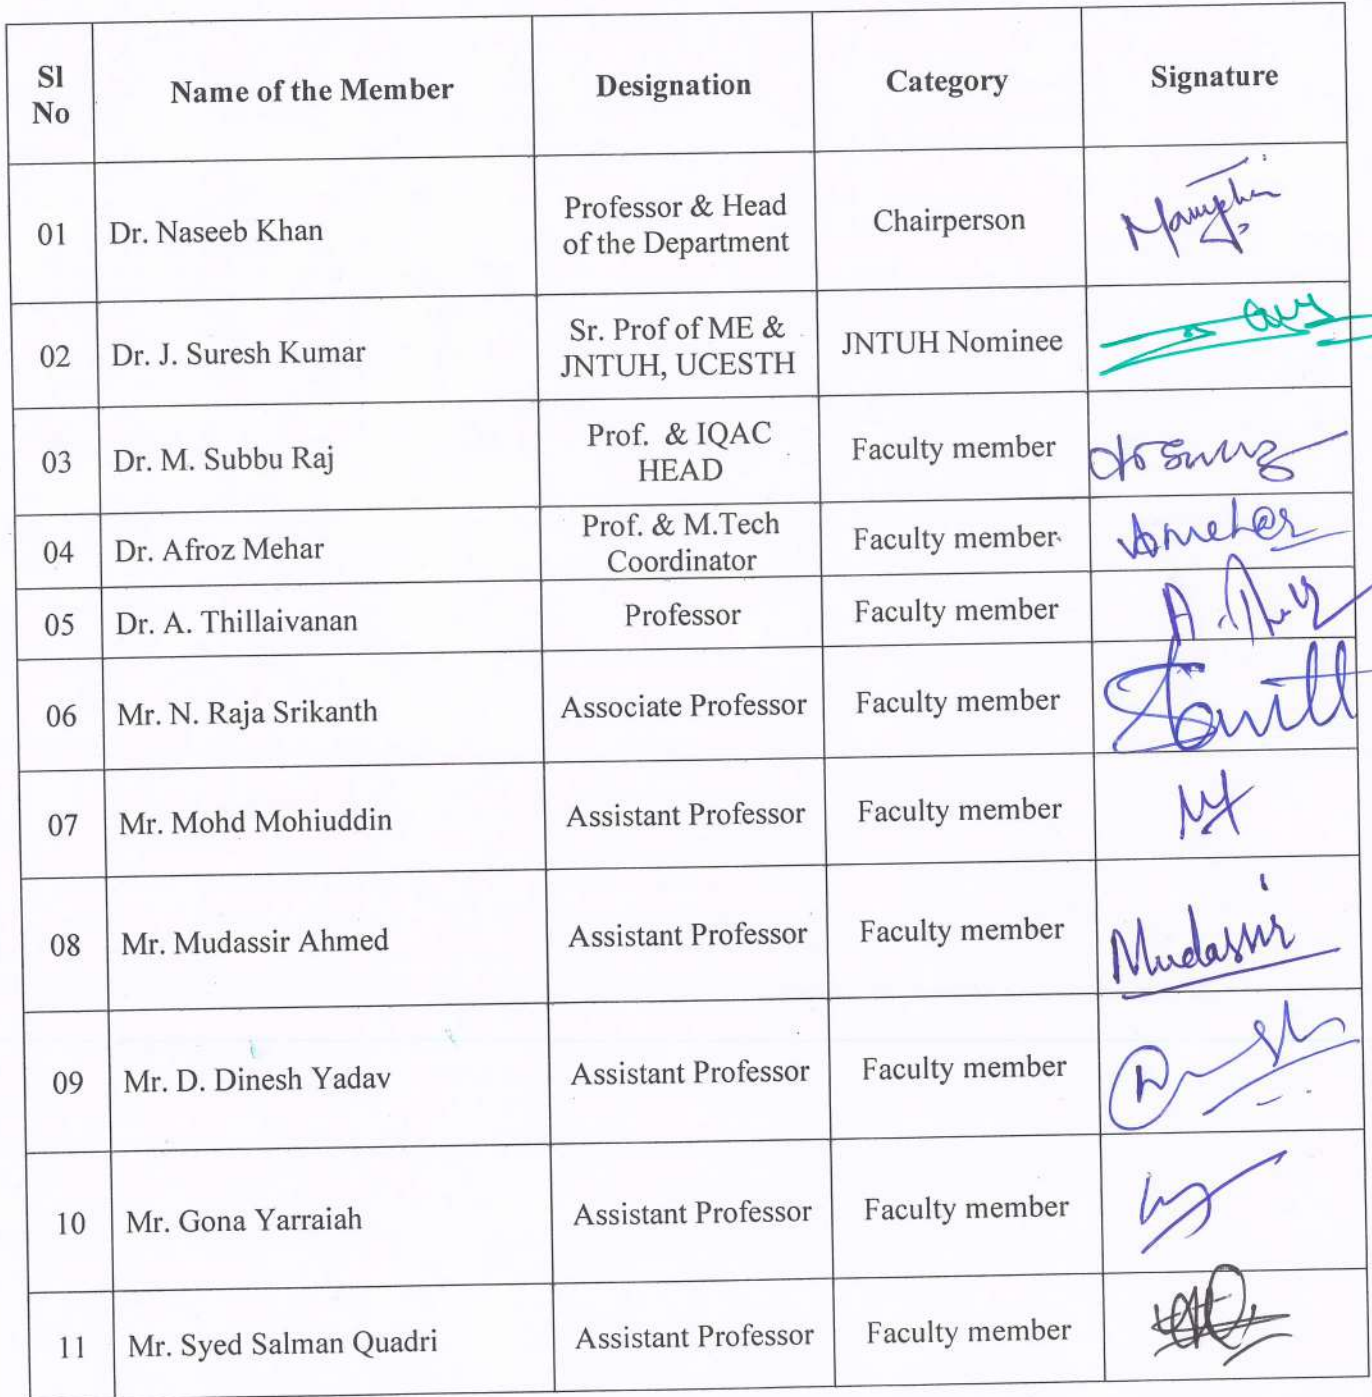 Sl No Name of the Member Designation Category Signature
01 Dr. Naseeb Khan Professor & Head of the Department Chairperson
02 Dr. J. Suresh Kumar Sr. Prof of ME & JNTUH, UCESTH JNTUH Nominee
03 Dr. M. Subbu Raj Prof. & IQAC HEAD Faculty member
04 Dr. Afroz Mehar Prof. & M.Tech Coordinator Faculty member
05 Dr. A. Thillaivanan Professor Faculty member
06 Mr. N. Raja Srikanth Associate Professor Faculty member
07 Mr. Mohd Mohiuddin Assistant Professor Faculty member
08 Mr. Mudassir Ahmed Assistant Professor Faculty member Mudassir
09 Mr. D. Dinesh Yadav Assistant Professor Faculty member
10 Mr. Gona Yarraiah Assistant Professor Faculty member
11 Mr. Syed Salman Quadri Assistant Professor Faculty member